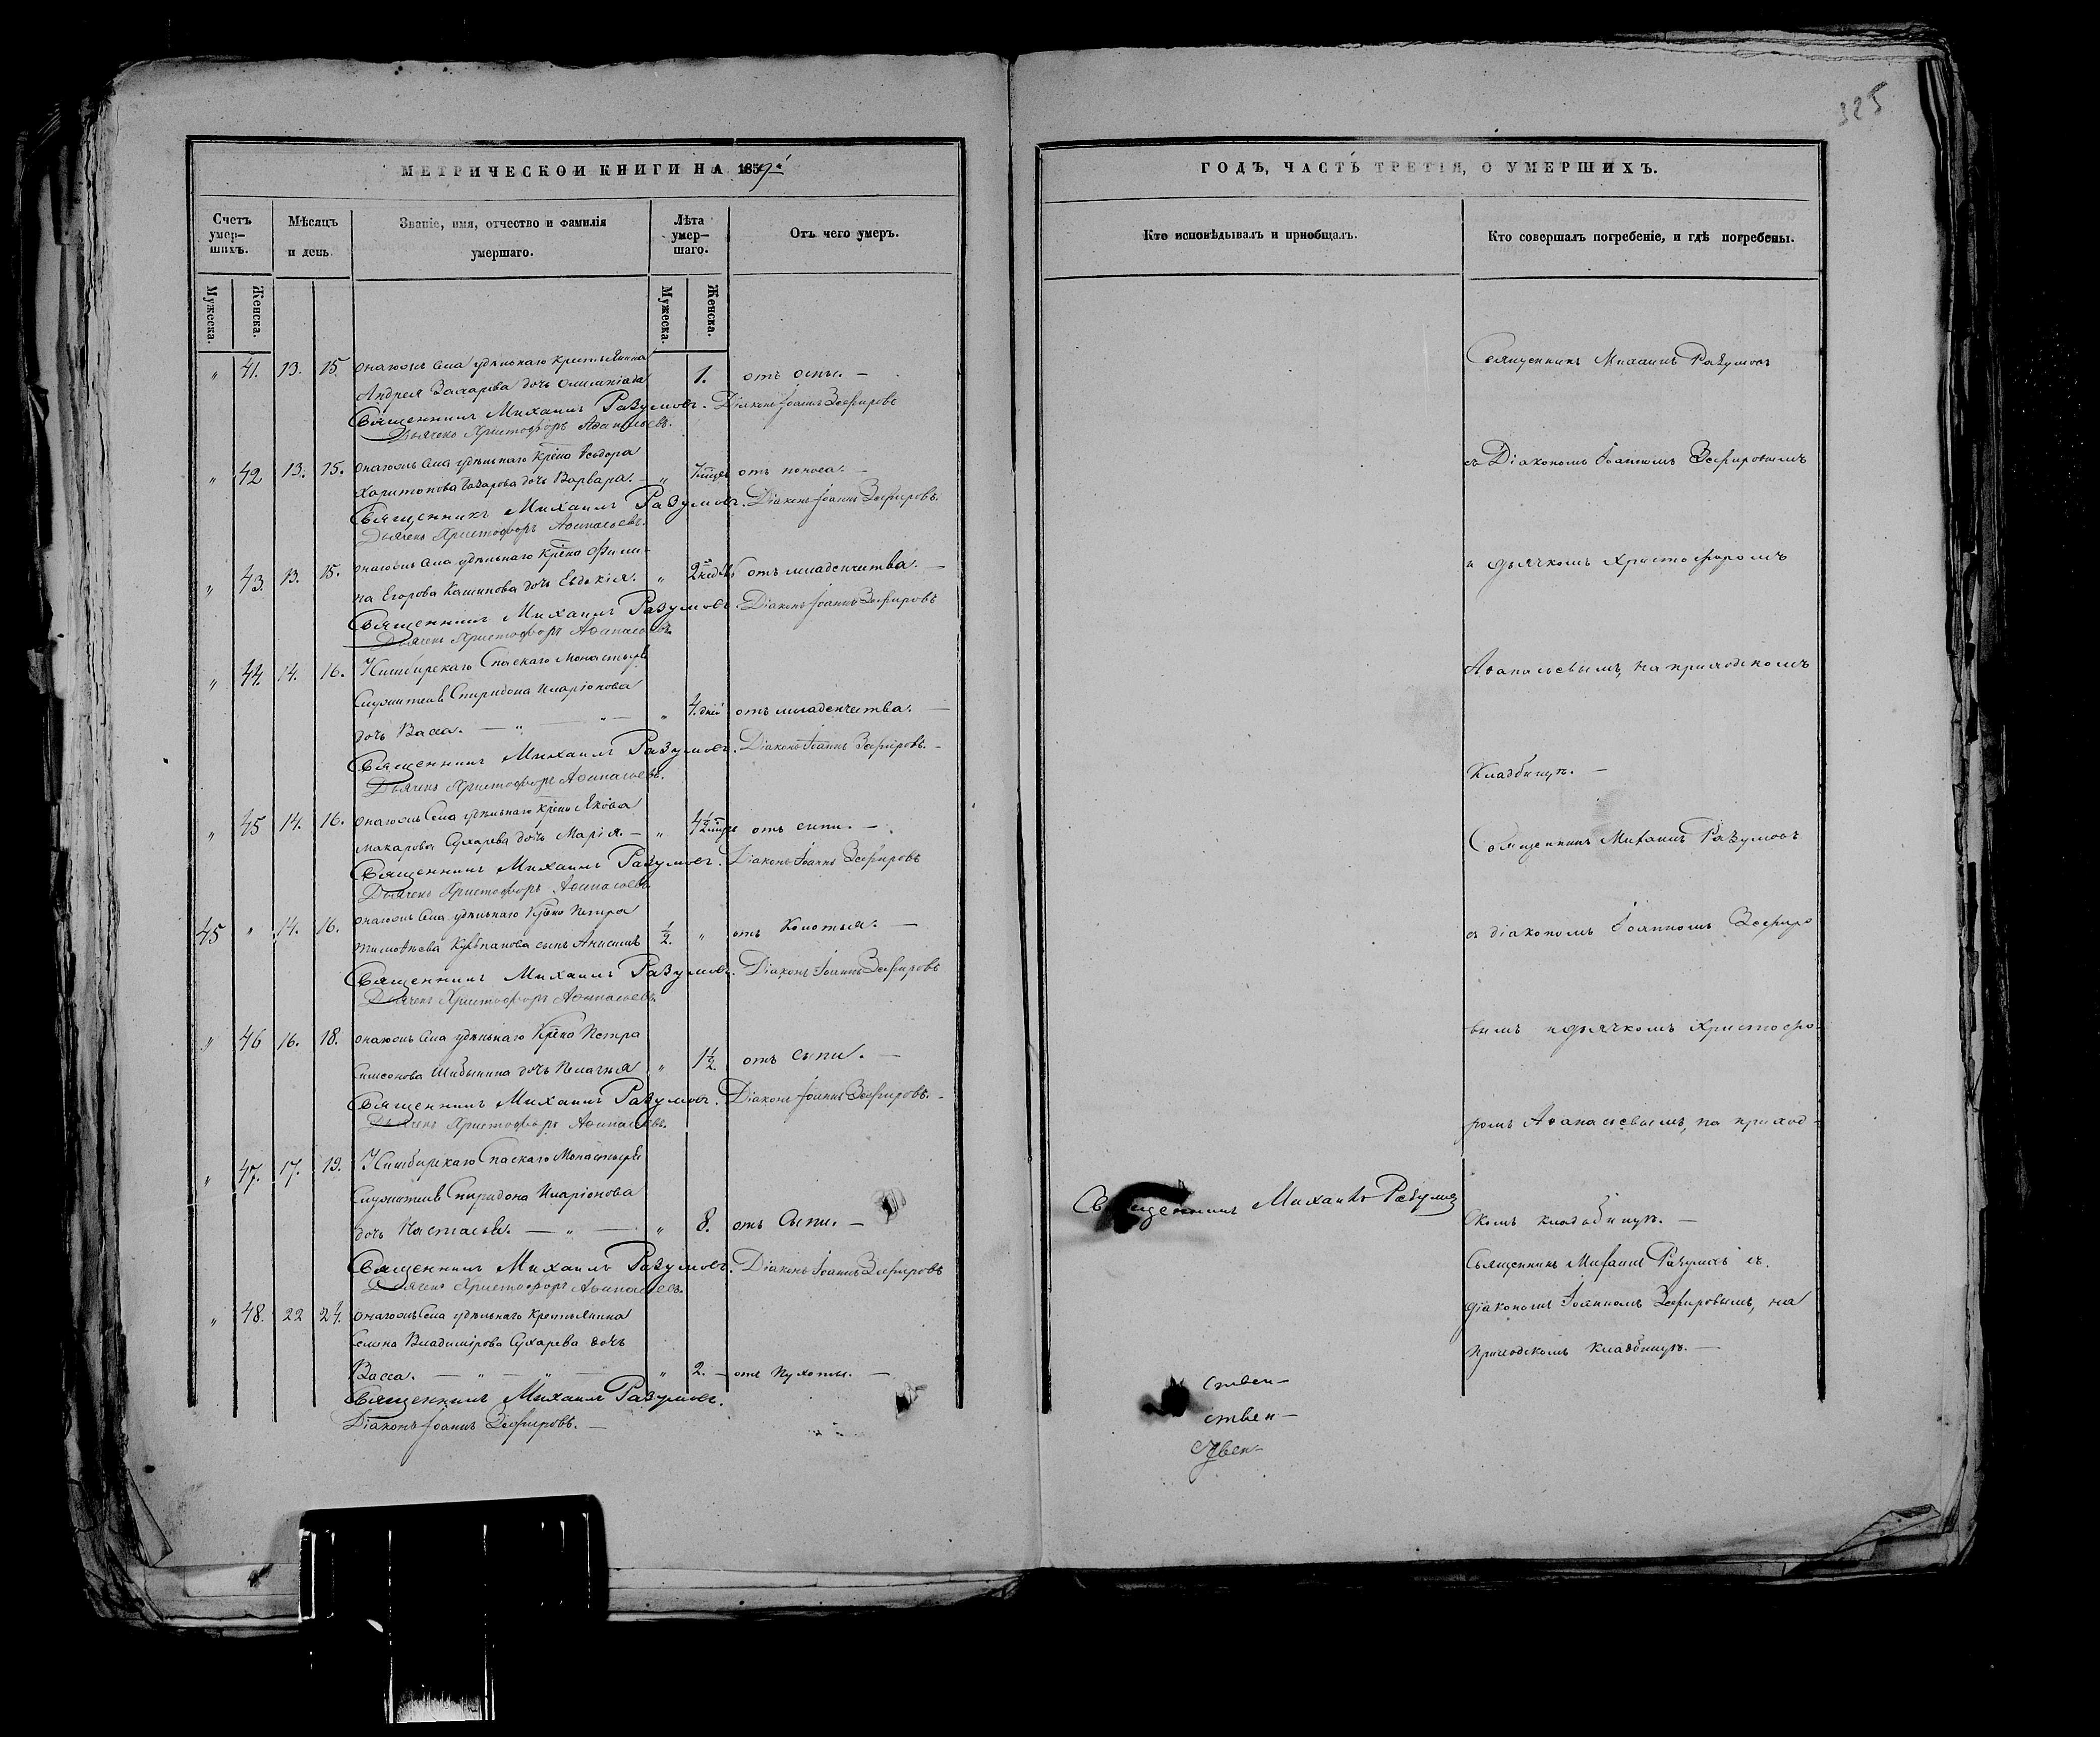 325
МЕТРИЧЕСКОИ КНИГИ НА 1859й
ГОДЪ, ЧАСТЬ ТРЕТІЯ, О УМЕРШИХЪ.
Счетъ умер-шихъ.
Мѣсяцъ и день
Званіе, имя, отчество и фамилія умершаго.
Лѣта умер-шаго.
Отъ чего умеръ.
Кто исповѣдывалъ и пріобщалъ.
Кто совершалъ погребеніе, и гдѣ погребены.
Мужеска. Женска. Мужеска. Женска.
" 41. 13. 15. онагожъ села удѣльнаго крестьянина
Андрея Захарова дочь Олимпіада 1. отъ оспы. —
Священникъ Михаилъ Разумовъ. Діаконъ Іоаннъ Зефировъ
Дьячекъ Христофоръ Аѳанасьевъ.
" 42 13. 15. онагожъ села удѣльнаго Крѣна Ѳеодора
Харитонова дочь Варвара. — " отъ поноса. —
Священникъ Михаилъ Разумовъ. Діаконъ Іоаннъ Зефировъ.
Дьячекъ Христофоръ Аѳанасьевъ.
" 43. 13. 15. онагожъ села удѣльнаго Крѣна Фили-
па Егорова дочь Евдокія. " 2 отъ младенчества. —
Священникъ Михаилъ Разумовъ. Діаконъ Іоаннъ Зефировъ
Дьячекъ Христофоръ Аѳанасьевъ.
" 44. 14. 16. Спаскаго Монастыря
Служителя Спиридона Иларіонова
дочь Васса. — " — " — " 4. дней отъ младенчества. —
Священникъ Михаилъ Разумовъ. Діаконъ Іоаннъ Зефировъ. —
Дьячекъ Христофоръ Аѳанасьевъ.
" 45 14. 16. онагожъ Села удѣльнаго Крѣна Якова
Макарова Сухарева дочь Марія. — " отъ сыпи. —
Священникъ Михаилъ Разумовъ. Діаконъ Іоаннъ Зефировъ
Дьячекъ Христофоръ Аѳанасьевъ
45 " 14. 16. онагожъ Села удѣльнаго Крѣна Петра
Тимоѳѣева сынъ Анисимъ ½. " отъ Колотья. —
Священникъ Михаилъ Разумовъ. Діаконъ Іоаннъ Зефировъ
Дьячекъ Христофоръ Аѳанасьевъ
" 46 16. 18. онагожъ Села удѣльнаго Крѣна Петра
Симеонова дочь Пелагея " 1½. отъ Сыпи. —
Священникъ Михаилъ Разумовъ. Діаконъ Іоаннъ Зефировъ. —
Дьячекъ Христофоръ Аѳанасьевъ.
" 47. 17. 19. Спаскаго Монастыря
Служителя Спиридона Иларіонова
дочь Настасья. — " — " 8. отъ Сыпи. —
Священникъ Михаилъ Разумовъ. Діаконъ Іоаннъ Зефировъ
Дьячекъ Христофоръ Аѳанасьевъ.
" 48. 22 24. онагожъ Села удѣльнаго Крестьянина
Семена Владимірова Сухарева дочь
Васса. — " — " — " 2. — отъ Пухоты. —
Священникъ Михаилъ Разумовъ.
Діаконъ Іоаннъ Зефировъ. —
Священникъ Михаилъ Разумов
ствен—
ствен—
Священникъ Михаилъ Разумовъ
съ Діакономъ Іоанномъ Зефировымъ
и дьячкомъ Христофоромъ
Аѳанасьевымъ, на приходскомъ
Кладбищѣ. —
Священникъ Михаилъ Разумовъ
съ діакономъ Іоанномъ Зефиро
вымъ и дьячкомъ Христофо-
ромъ Аѳанасьевымъ, на приход-
скомъ кладбищѣ. —
Священникъ Михаилъ Разумовъ съ
діакономъ Іоанномъ Зефировымъ, на
приходскомъ кладбищѣ. —